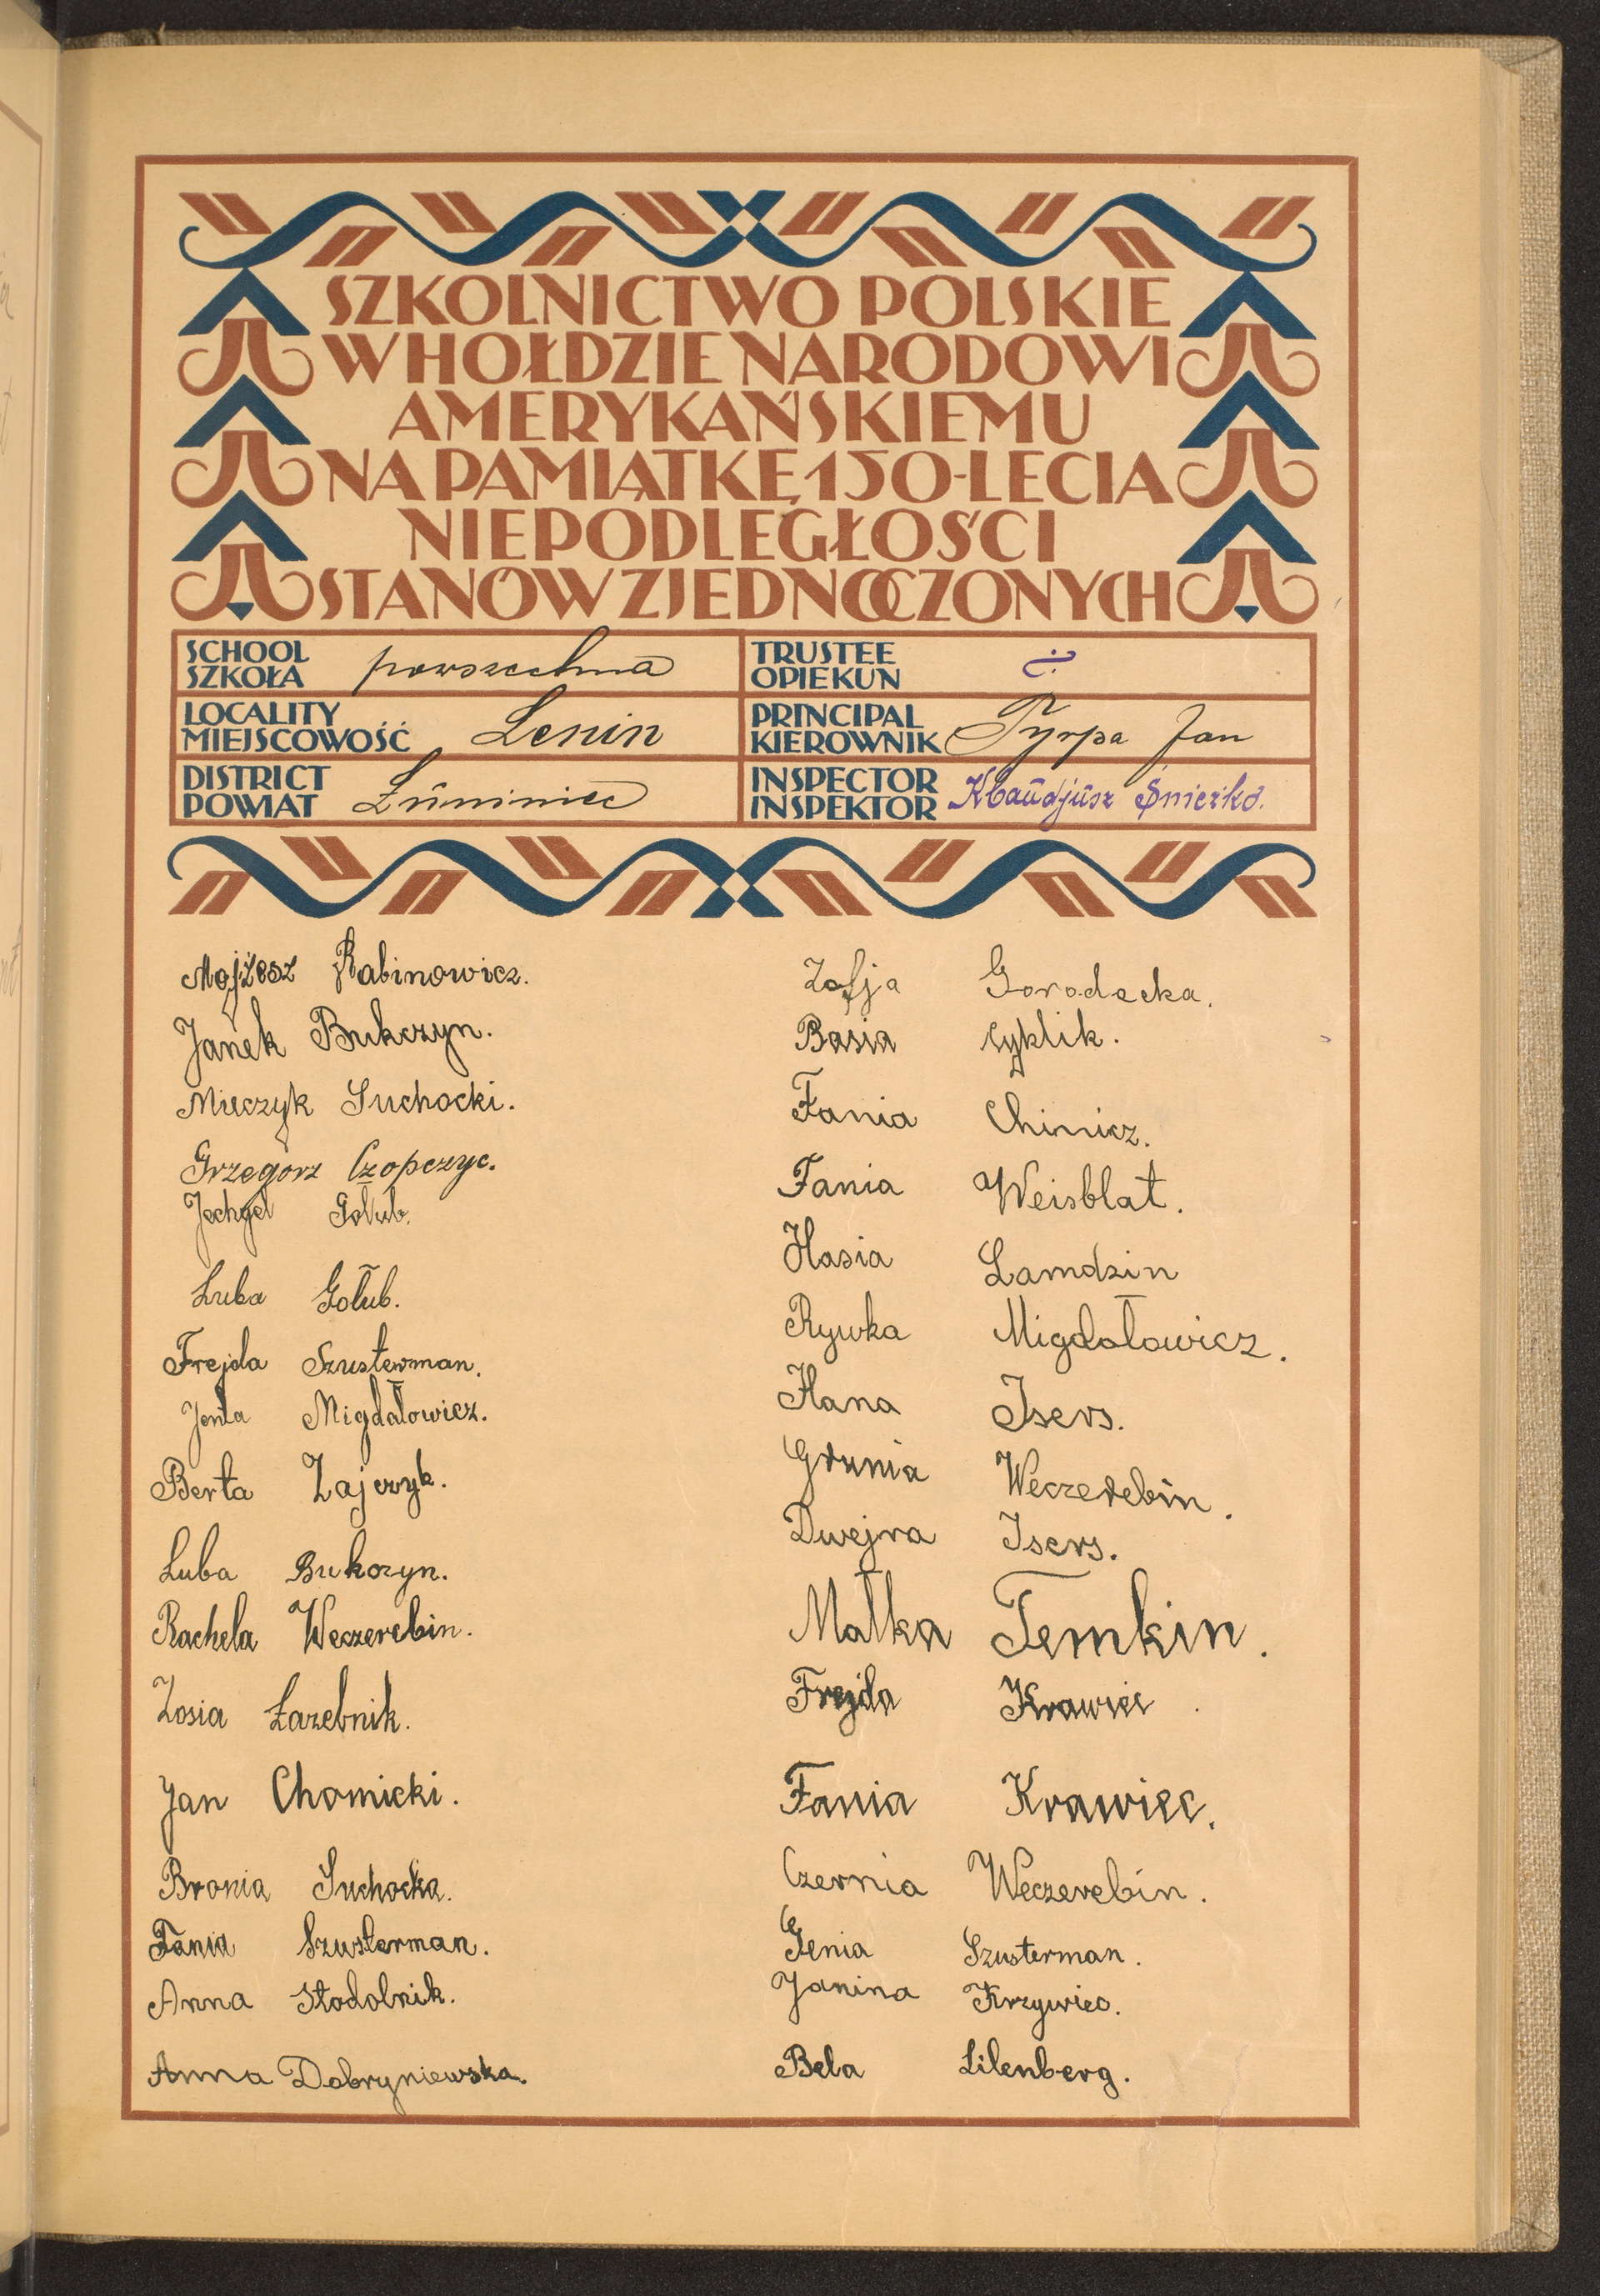 SZKOLNICTWO POLSKIE
W HOŁDZIE NARODOWI
AMERYKAŃSKIEMU
NA PAMIĄTKĘ 150-LECIA
NIEPODLEGŁOŚCI
STANÓW ZJEDNOCZONYCH
SCHOOL
SZKOŁA powszechna
TRUSTEE
OPIEKUN
LOCALITY
MIEJSCOWOŚĆ Lenin
PRINCIPAL
KIEROWNIK Pyrpa Jan
DISTRICT
POWIAT Łuniniec
INSPECTOR
INSPEKTOR Klaudjusz Śnieżko.
Mojżesz Rabinowicz.
Janek Bukczyn.
Mieczyk Suchocki.
Grzegorz Czopczyc.
Jechgel Golub.
Luba Gołub.
Frejda Szusterman.
Jenta Migdałowicz.
Berta Zajczyk.
Luba Bukczyn.
Rachela Weczerebin.
Zosia Łazebnik.
Jan Chomicki.
Bronia Suchocka.
Fania Szusterman.
Anna Stodolnik.
Anna Dobryniewska.
Zofja Gorodecka.
Basia Cyklik.
Fania Chinicz.
Fania Weisblat.
Hasia Lamdzin
Rywka Migdałowicz.
Hana Isers.
Grunia Weczerebin.
Dwejra Isers.
Małka Temkin.
Frejda Krawiec.
Fania Krawiec.
Czernia Weczerebin.
Genia Szusterman.
Janina Krzywiec.
Bela Lilenberg.